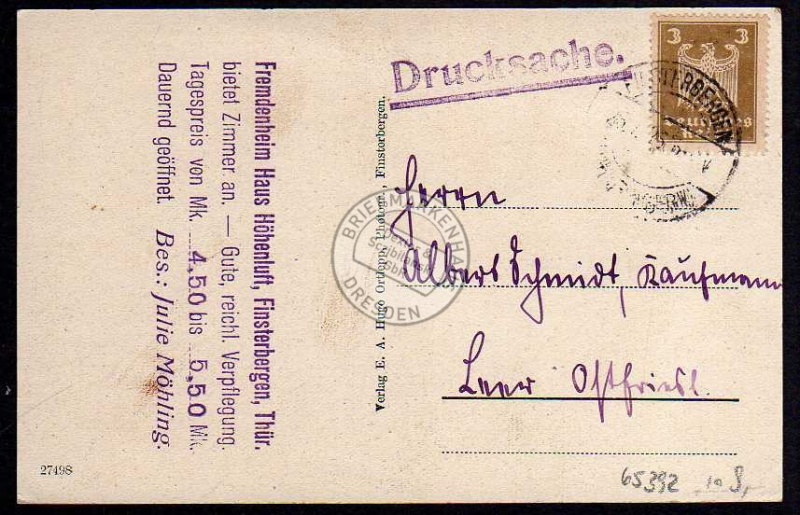 Fremdenheim Haus Höhenluft, Finsterbergen, Thür.
bietet Zimmer an. — Gute, reichl. Verpflegung.
Tagespreis von Mk. 4,50 bis 5,50 Mk.
Dauernd geöffnet. Bes.: Julie Möhling.
27498
Verlag E. A. Hugo Ortlepp, Finsterbergen.
Drucksache.
3 3
Deutsches
FINSTERBERGEN
BRIEFMARKENHAUS
DRESDEN
Herrn
Albert Schmidt, Kaufmann
Leer Ostfriesl.
65392